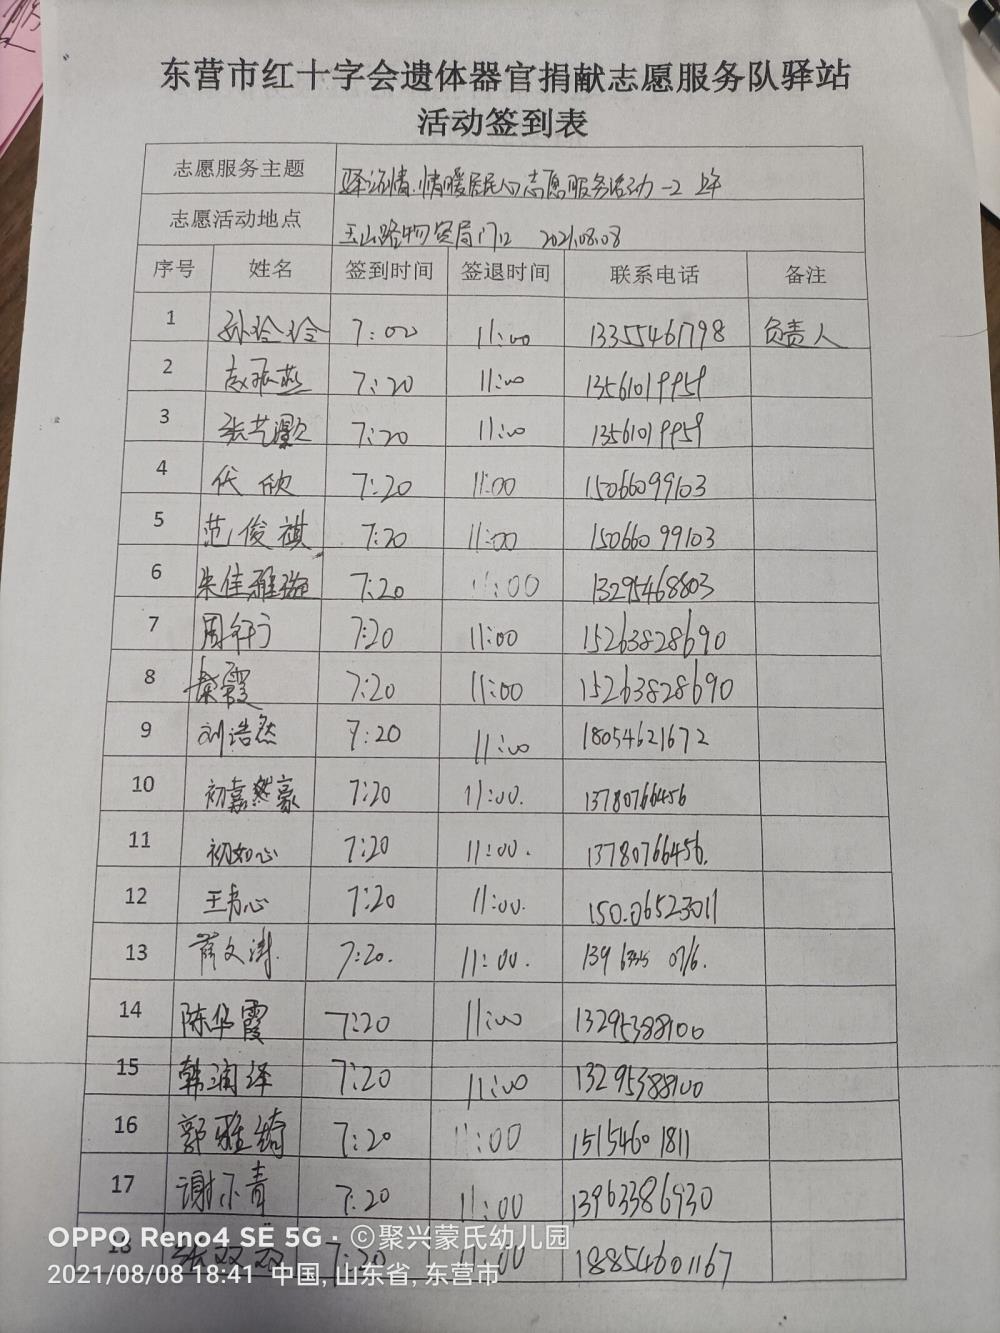 东营市红十字会遗体器官捐献志愿服务队驿站
活动签到表
志愿服务主题 驿站情.情暖居民心志愿服务活动-2 上午
志愿活动地点 玉山路物资局门口 2021.08.08
序号 姓名 签到时间 签退时间 联系电话 备注
1 孙玲玲 7:00 11:00 13355461798 负责人
2 赵振燕 7:20 11:00 13561019959
3 张艺灏 7:20 11:00 13561019959
4 代欣 7:20 11:00 15066099103
5 范俊祺 7:20 11:00 15066099103
6 朱佳雅璇 7:20 11:00 13295468803
7 周衍行 7:20 11:00 15263828690
8 秦霞 7:20 11:00 15263828690
9 刘浩然 7:20 11:00 18054621672
10 初嘉豪 7:20 11:00. 13780766456
11 初如心 7:20 11:00. 13780766456.
12 王书心 7:20 11:00. 150.06523011
13 薛文澍. 7:20. 11:00. 139
14 陈华霞 7:20 11:00 13295388100
15 韩润泽 7:20 11:00 13295388100
16 郭雅绮 7:20 11:00 15154601811
17 谢亦青 7:20 11:00 13963386930
18 张双双 7:20 11:00 18854601167
OPPO Reno4 SE 5G · ©聚兴蒙氏幼儿园
2021/08/08 18:41 中国, 山东省, 东营市